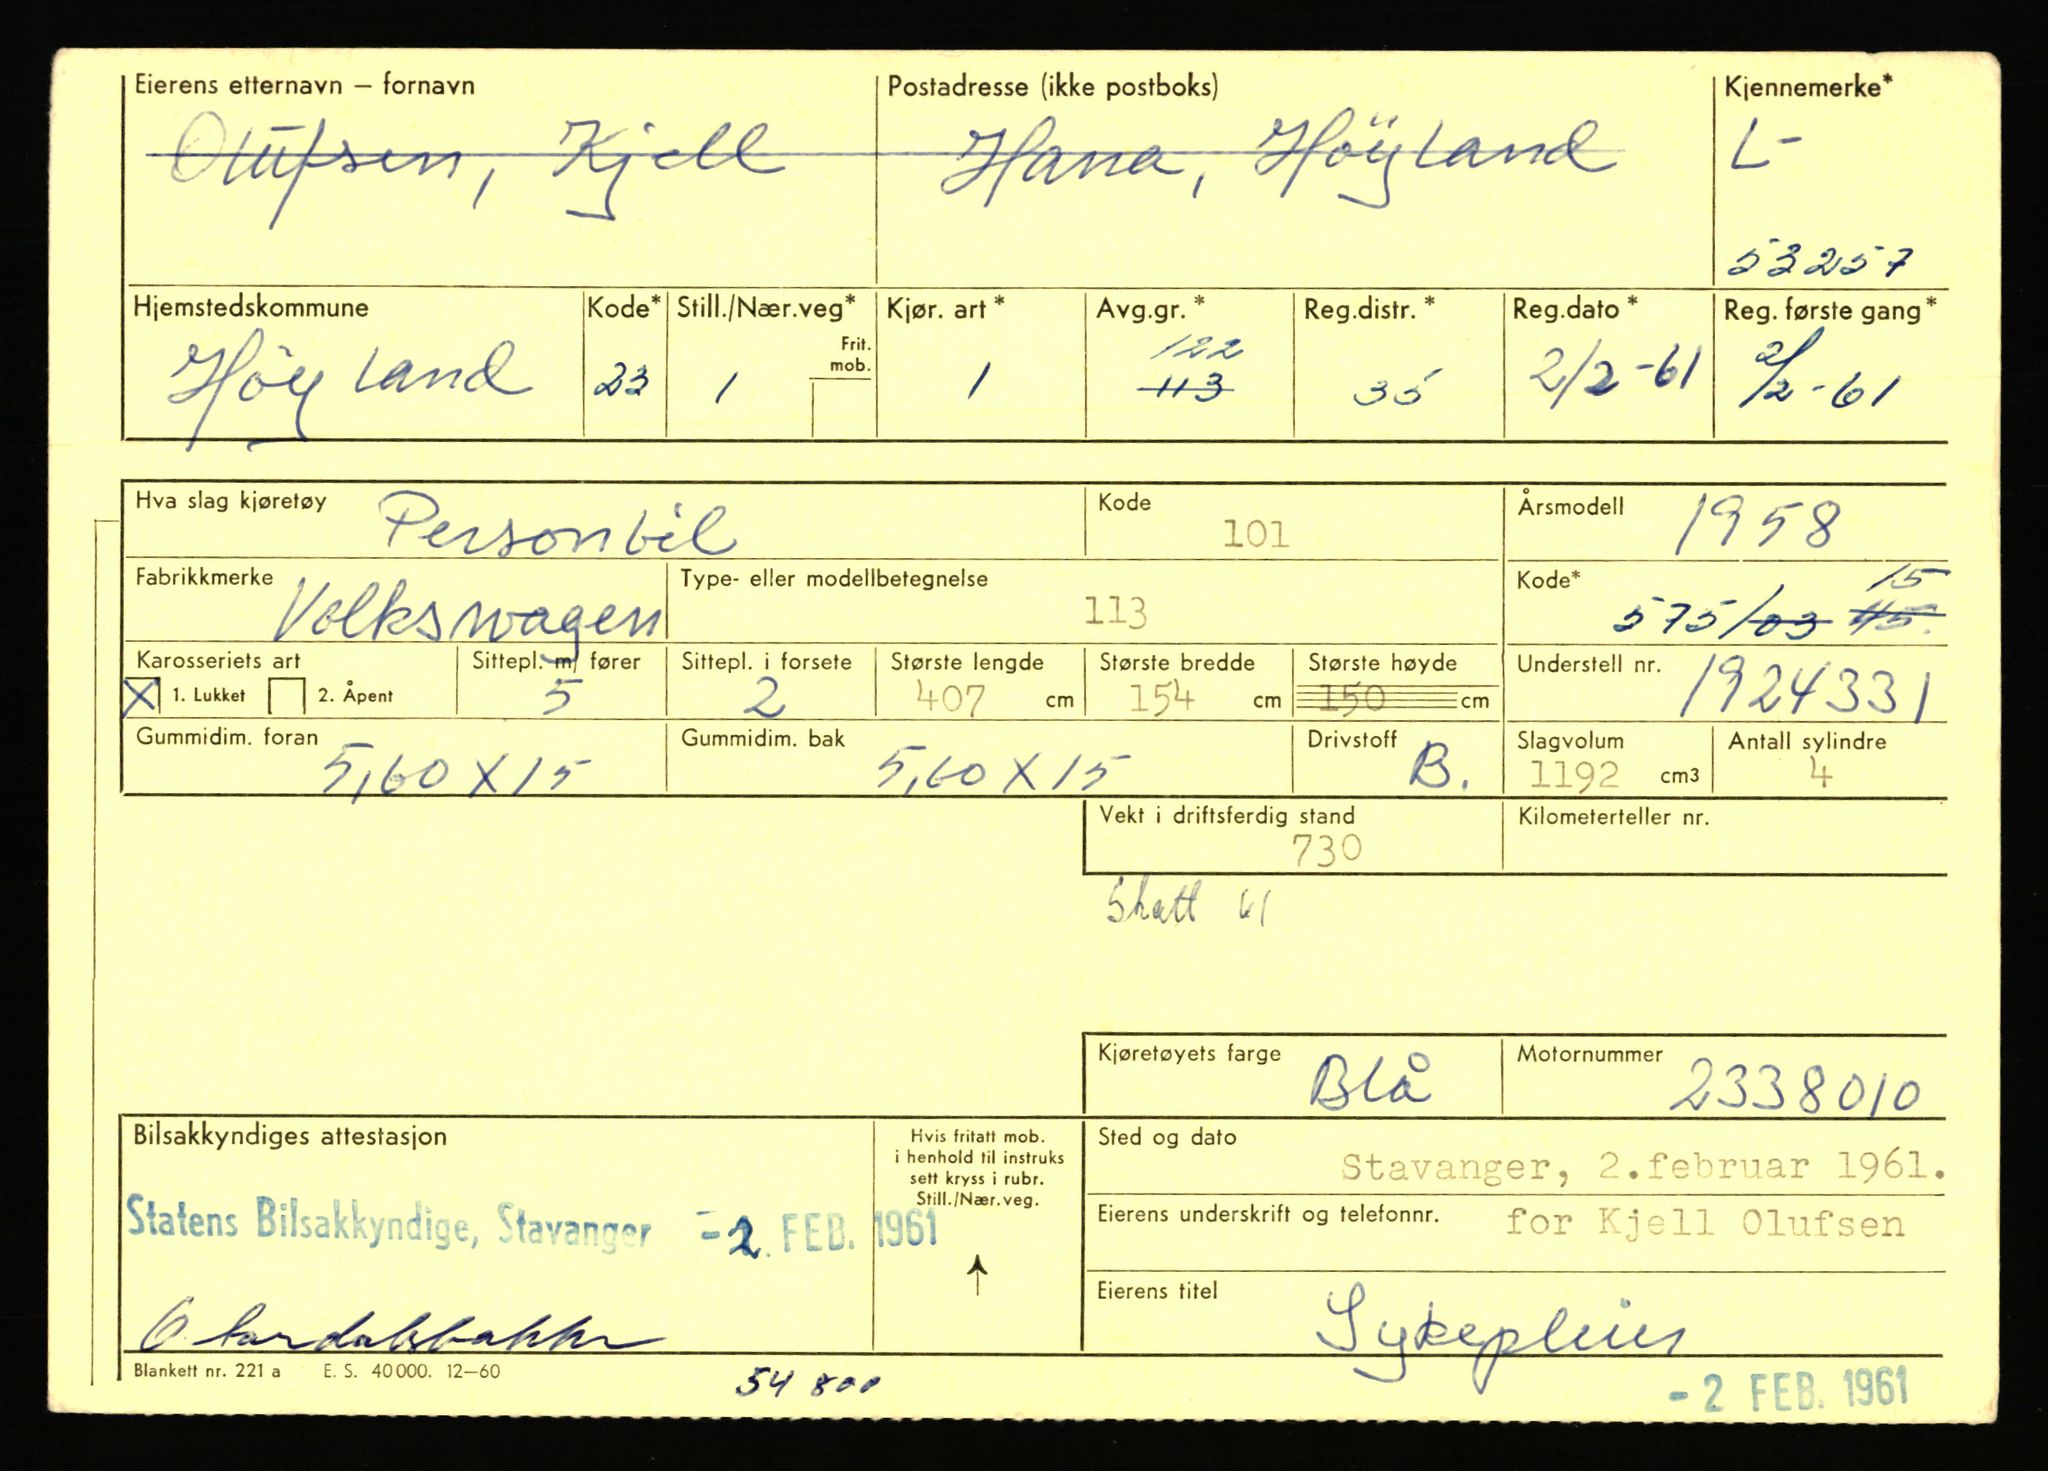 Eierens etternavn – fornavn Postadresse (ikke postboks) Kjennemerke*
Olufsen, Kjell Hana, Höyland L-
53257
Hjemstedskommune Kode* Still./Nær.veg* Kjør. art* Avg.gr.* Reg.distr.* Reg.dato* Reg. første gang*
Frit. mob.
122
Höyland 23 1 1 113 35 2/2-61 2/2-61
Hva slag kjøretøy Personbil Kode 101 Årsmodell 1958
Fabrikkmerke Volkswagen Type- eller modellbetegnelse 113 Kode* 575/03 45. 15
Karosseriets art Sittepl. m/ fører Sittepl. i forsete Største lengde Største bredde Største høyde Understell nr.
X 1. Lukket 2. Åpent 5 2 407 cm 154 cm 150 cm 1924331
Gummidim. foran Gummidim. bak Drivstoff Slagvolum Antall sylindre
5,60 X 15 5,60 X 15 B. 1192 cm3 4
Vekt i driftsferdig stand Kilometerteller nr.
730
Skatt 61
Kjøretøyets farge Blå Motornummer 2338010
Bilsakkyndiges attestasjon
Hvis fritatt mob.
i henhold til instruks
sett kryss i rubr.
Still./Nær.veg.
Sted og dato
Stavanger, 2.februar 1961.
Statens Bilsakkyndige, Stavanger -2. FEB. 1961
Eierens underskrift og telefonnr. for Kjell Olufsen
Eierens titel
Sykepleier
Blankett nr. 221 a E. S. 40000. 12–60
54 800
-2 FEB. 1961